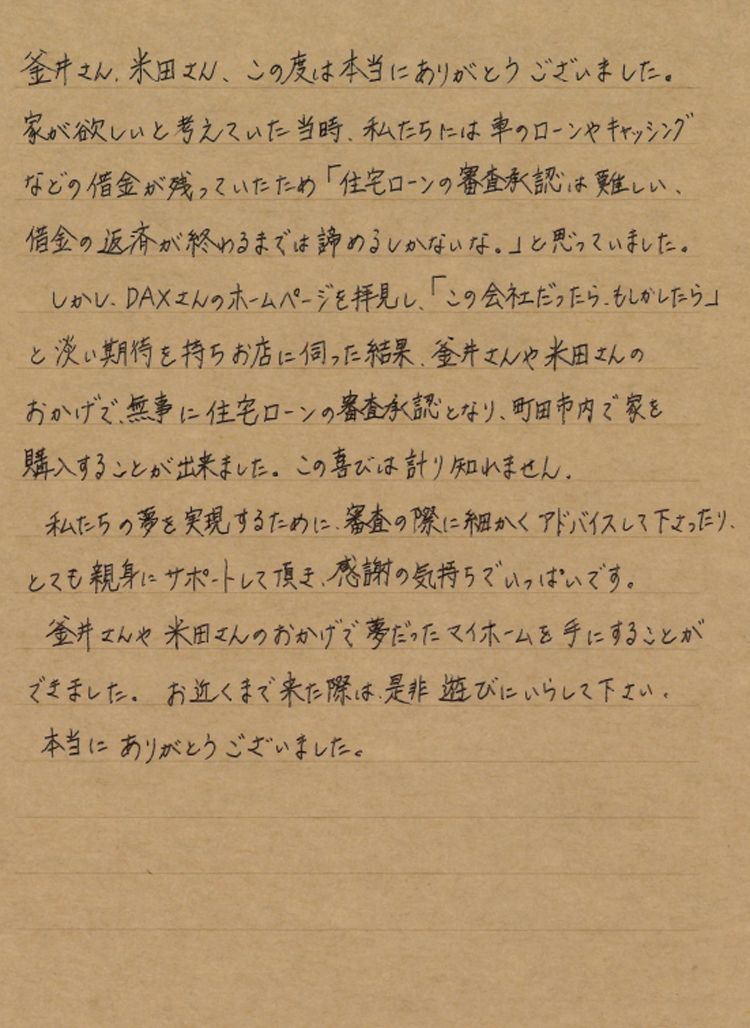 釜井さん、米田さん、この度は本当にありがとうございました。
家が欲しいと考えていた当時、私たちには車のローンやキャッシング
などの借金が残っていたため「住宅ローンの審査承認は難しい、
借金の返済が終わるまでは諦めるしかないな。」と思っていました。
しかし、DAXさんのホームページを拝見し、「この会社だったら、もしかしたら」
と淡い期待を持ちお店に伺った結果、釜井さんや米田さんの
おかげで、無事に住宅ローンの審査承認となり、町田市内で家を
購入することが出来ました。この喜びは計り知れません。
私たちの夢を実現するために、審査の際に細かくアドバイスして下さったり、
とても親身にサポートして頂き、感謝の気持ちでいっぱいです。
釜井さんや米田さんのおかげで夢だったマイホームを手にすることが
できました。お近くまで来た際は、是非遊びにいらして下さい。
本当にありがとうございました。